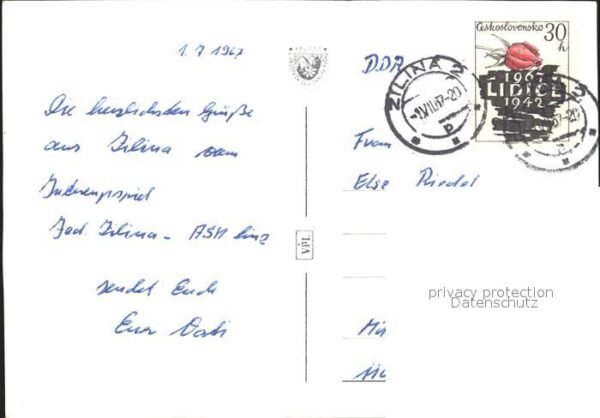 1.7.1967
Die herzlichsten Grüße
aus Žilina vom
Intertotospiel
Jed. Žilina - ASK Linz
sendet Euch
Euer Vati
VPL
DDR
Frau
Else Riedel
Československo
30 h
1967
LIDICE
1942
ŽILINA 2
-1.VII.67-20
privacy protection
Datenschutz